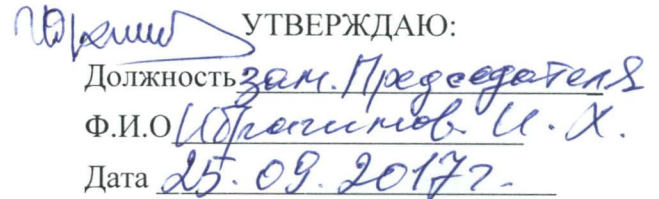 УТВЕРЖДАЮ:
Должность зам. Председателя
Ф.И.О Ибрагимов И. Х.
Дата 25.09.2017г.